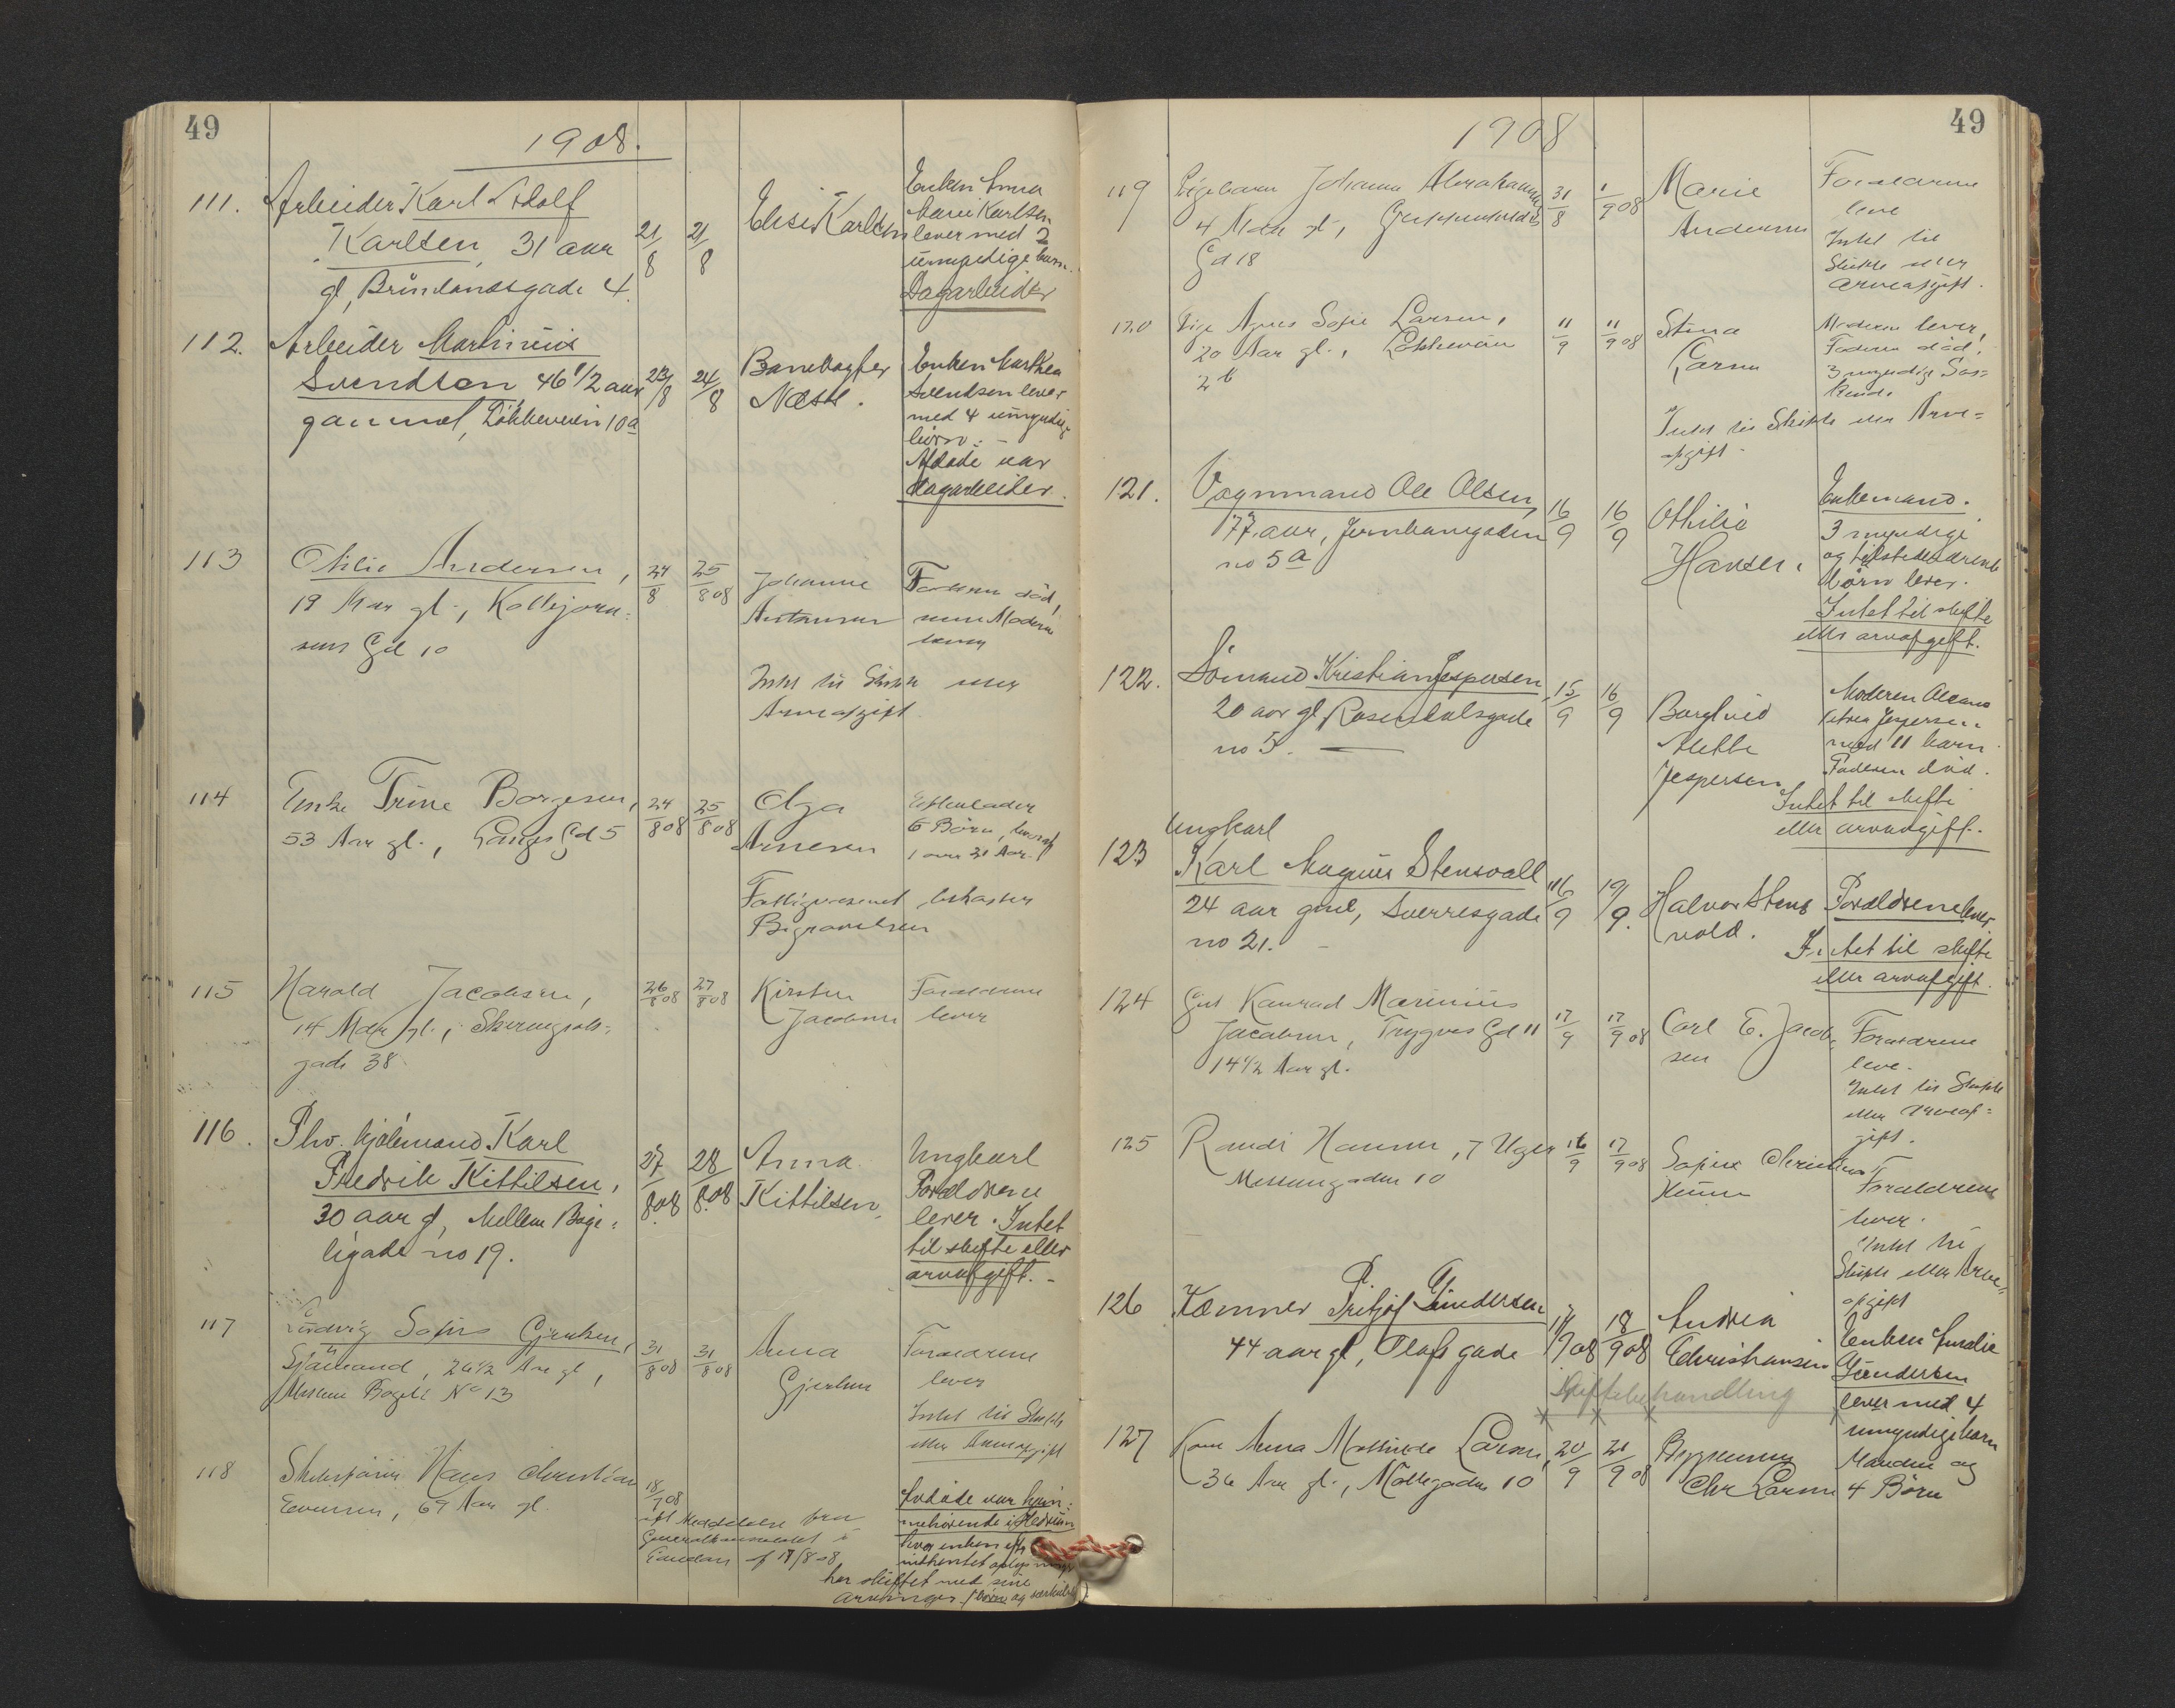 49
1908.
111. Arbeider Karl Adolf
Karlsen, 31 aar
gl, Brünlandsgade 4.
21/8 21/8
Elise Karlsen
Enken Anna
Marie Karlsen
lever med 2
umyndige barn.
Dagarbeider
112. Arbeider Marhinius
Svendsen 46 1/2 aar
gammel, Løkkeveien 10a
23/8 24/8
Banevogter
Næss.
Enken Marthea
Svendsen lever
med 4 umyndige
børn. -
Afdøde var
dagarbeider.
113 Othilie Andersen,
19 Aar gl., Kolbjørn-
sens Gd 10
24/8 25/8 08
Johanne
Faderen død,
men Moderen
lever
Intet til Skifte eller
Arveafgift
114 Enke Trine Borgesen,
53 Aar gl., Langes Gd 5
24/8 08 25/8 08
Olga
Arnesen
Efterlader
6 Børn, hvoraf
1 over 21 Aar.
Fattigvæsenet bekoster
Begravelsen
115 Harald Jacobsen,
14 Mdr gl., Skiringssals-
gade 38
26/8 08 27/8 08
Kirsten
Jacobsen
Forældrene
lever
116. Phv. hjolémand Karl
Fredrik Kittilsen,
30 aar gl, Mellem Bøge-
ligade no 19.
27/8 08 28/8 08
Anna
Kittilsen
Ungkarl
Forældrene
lever. Intet
til skifte eller
arvafgift. -
117 Ludvig Sofus Gjertsen,
Sjømand, 26 1/2 Aar gl,
Mellem Bøgeli No 13
31/8 08 31/8 08
Anna
Gjertsen
Forældrene
lever
Intet til Skifte
eller Arveafgift
118 Skibsfører Hans Christian
Evensen, 69 Aar gl.
18/7 08
ifl Meddelelse fra
Generalkonsulatet i
London af 17/8 08
Avdøde var hjem-
mehørende i Hedrum
hvor enken efter
indhentet oplysninger
har skiftet med sine
arvinger. (børn og
49
1908
119 Pigebarn Johanne Abrahamsen
4 Mdr gl,
Gd 18
31/8 1/9 08
Marie
Andersen
Forældrene
leve
Intet til
Skifte eller
arveafgift.
120 Pige Agnes Sofie Larsen,
20 Aar gl., Løkkeveien
2 b
11/9 11/9 08
Stina
Larsen
Moderen lever,
Faderen død,
3 myndige Søs-
kende
Intet til Skifte eller Arve-
afgift.
121. Vognmand Ole Olsen,
77 aar, Jernbanegaden
no 5a
16/9 16/9
Othilie
Hansen.
Enkemand.
3 myndige
og tilstedeværende
børn lever.
Intet til skifte
eller arvafgift.
122. Sømand Kristian Jespersen
20 aar gl Rosenkulsgade
no 5. -
15/9 16/9
Borghild
Alethe
Jespersen
Moderen
Jespersen
med 11 barn.
Faderen død.
Intet til skifte
eller arvavgift.
123 Ungkarl
Karl Magnus Stensvall
24 aar gml, Sverresgade
no 21. -
16/9 19/9.
Halvor Stens
vold.
Forældrene lever
Intet til skifte
eller arvafgift.
124 Gut Konrad Marinius
Jacobsen, Trygves Gd 11
14 1/2 Aar gl.
17/9 17/9 08
Carl E. Jacob-
sen
Forældrene
leve.
Intet til Skifte
eller Arveaf-
gift.
125 Randi Hansen, 7 Uger
10
16/9 17/9 08
Sofus Christian
Forældrene
lever.
Intet til
Skifte eller Arve-
afgift
126 Kæmner P. Fritjof Gundersen
44 aar gl, Olafs gade
17/9 08 18/9 08
Andrea
Christiansen
Enken Amalie
Gundersen
lever med 4
umyndige barn
Skiftebehandling
127 Kone Anna Mathilde Larsen,
36 Aar gl., Møllegaden 10
20/9 21/9 08
Chr Larsen
Manden og
4 Børn